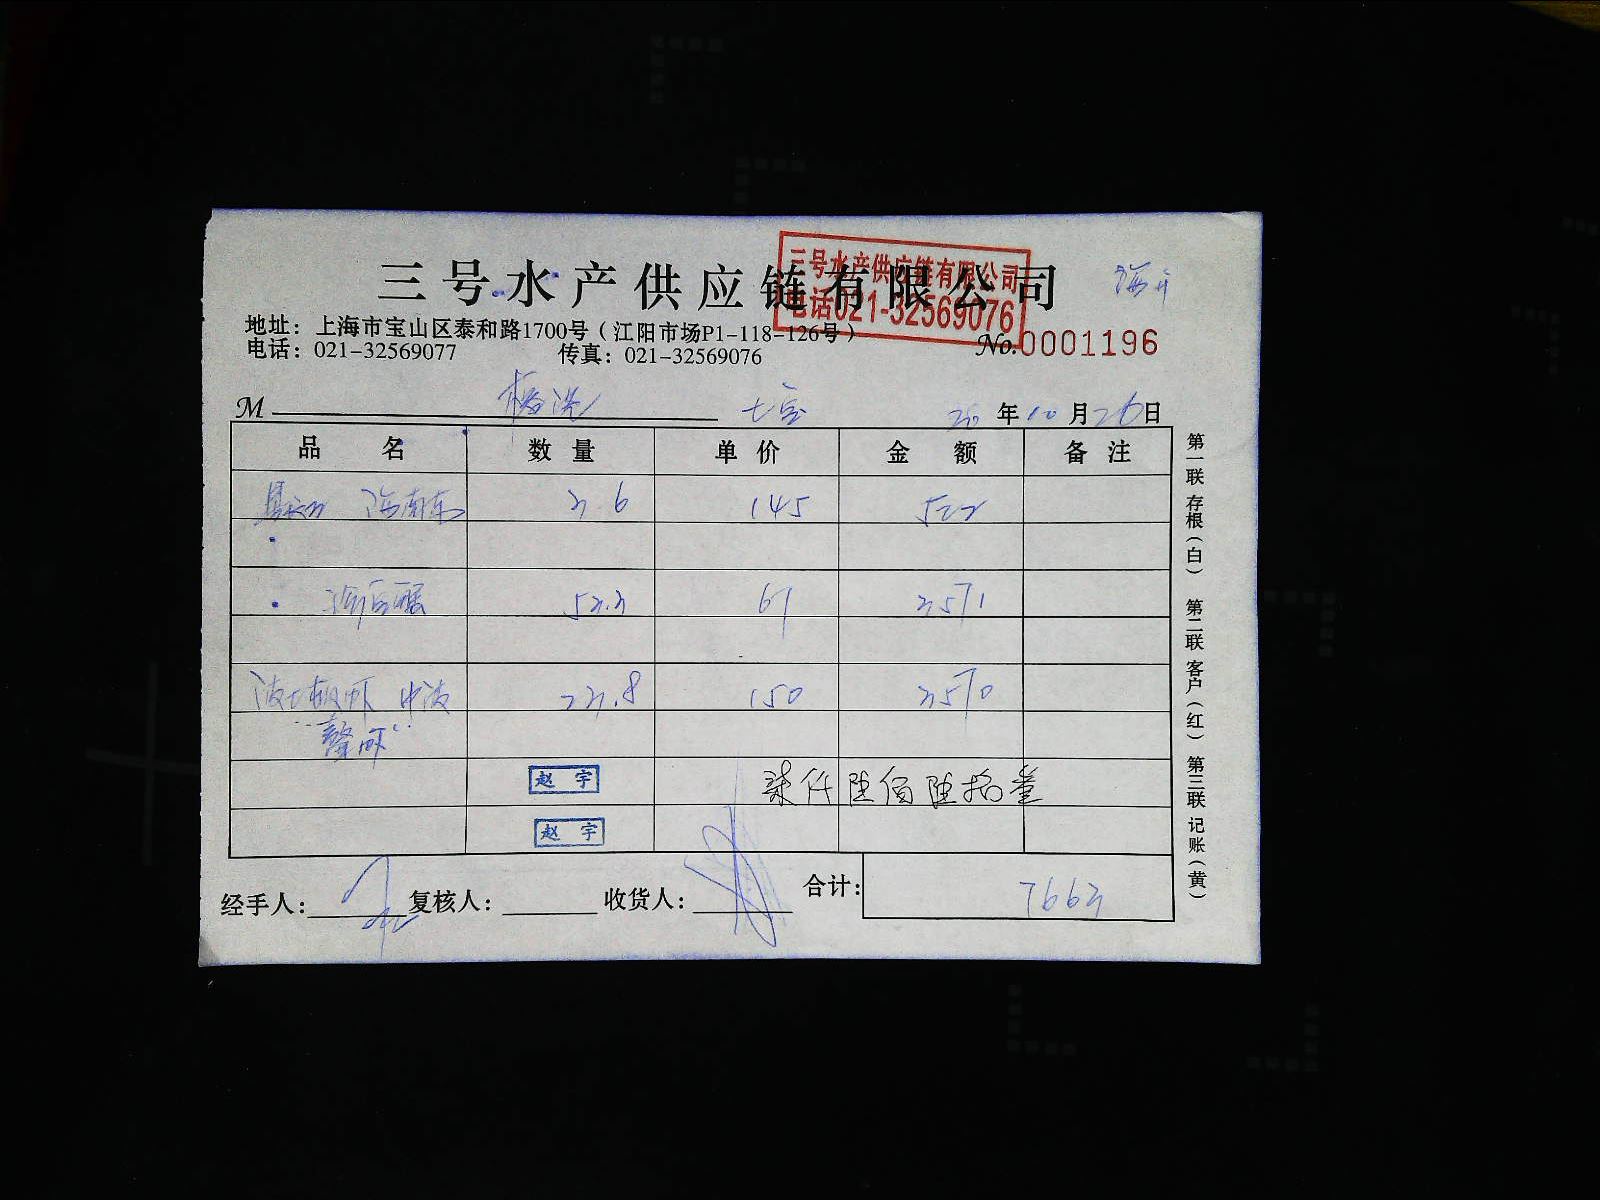 三号水产供应链有限公司
三号水产供应链有限公司
电话021-32569076
地址：上海市宝山区泰和路1700号（江阳市场P1-118-126号）
电话：021-32569077 传真：021-32569076
No.0001196
M 七宝 20年10月26日
品名 数量 单价 金额 备注
3.6 145 522
53.3 67 3571
波士顿 23.8 150 3570
赵宇 柒仟陆佰陆拾
赵宇
经手人： 复核人： 收货人： 合计： 7663
第一联 存根（白） 第二联 客户（红） 第三联 记账（黄）